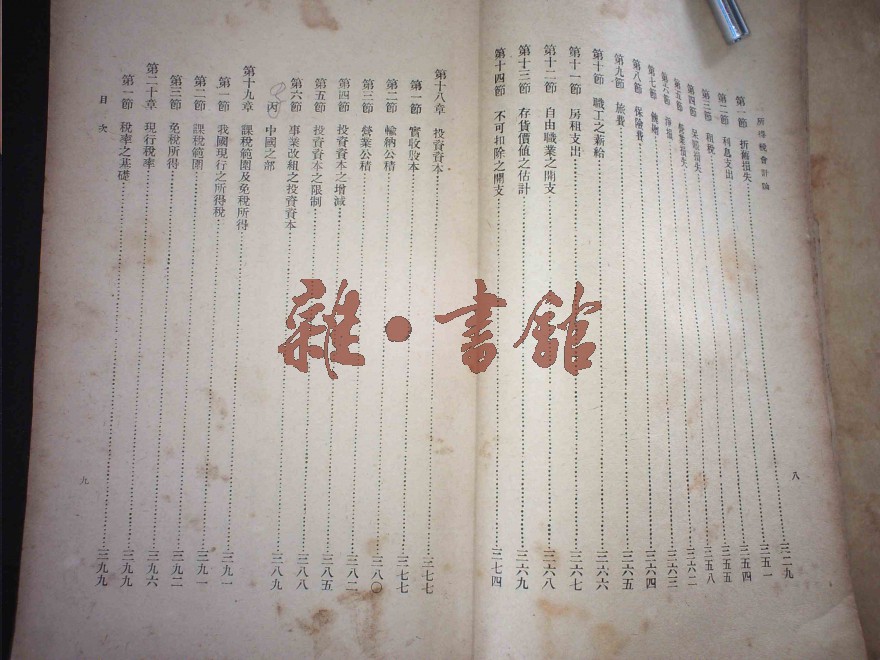 所得稅會計論
八
第一節 折舊損失……三二九
第二節 利息支出……三五一
第三節 租稅……三五四
第四節 呆賬損失……三五五
第五節 營業損失……三五八
第六節……三六二
第七節……三六三
第八節 保險費……三六四
第九節 旅費……三六五
第十節 職工之薪給……三六六
第十一節 房租支出……三六七
第十二節 自由職業之開支……三六八
第十三節 存貨價值之估計……三六九
第十四節 不可扣除之開支……三七四
第十八章 投資資本……三七七
第一節 實收股本……三七七
第二節 輸納公積……三八〇
第三節 營業公積……三八二
第四節 投資資本之增減……三八五
第五節 投資資本之限制……三八八
第六節 事業改組之投資資本……三八九
丙 中國之部
第十九章 課稅範圍及免稅所得……三九一
第一節 我國現行之所得稅……三九一
第二節 課稅範圍……三九二
第三節 免稅所得……三九六
第二十章 現行稅率……三九九
第一節 稅率之基礎……三九九
目次
九
雜·書館